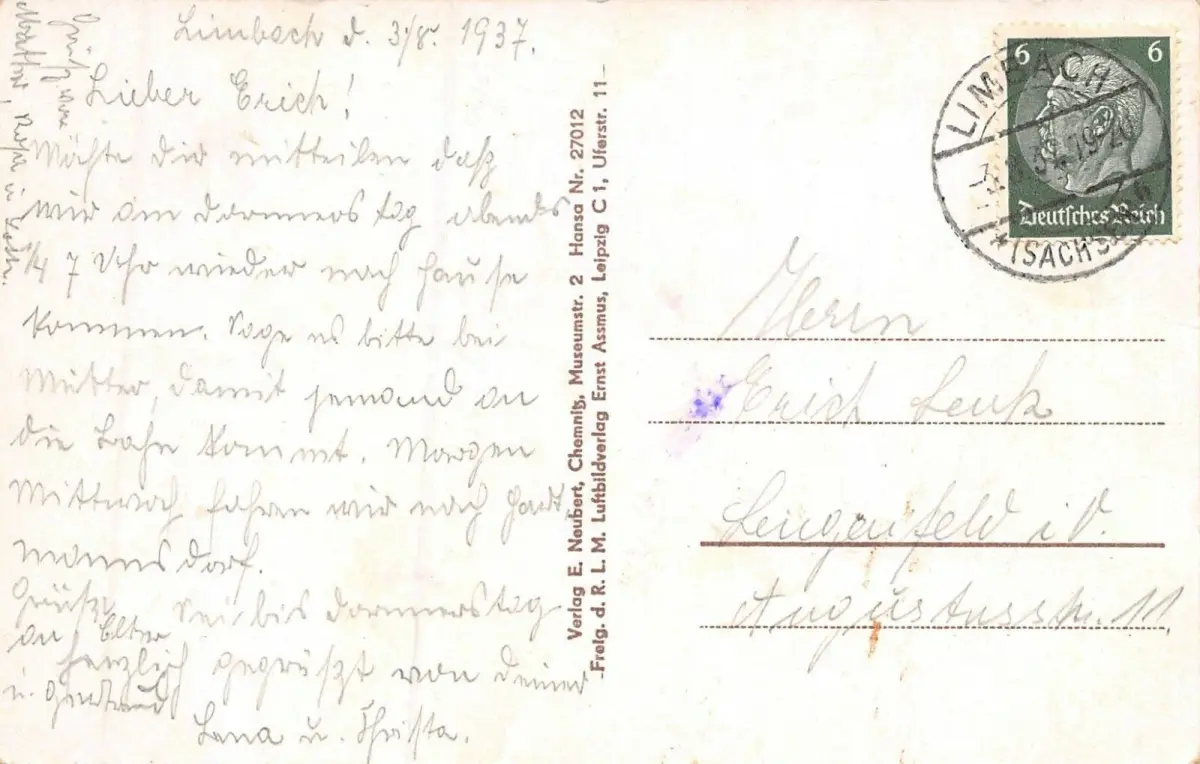 Limbach d. 3/8. 1937.
Lieber Erich!
Möchte dir mitteilen daß
wir am Donnerstag abends
1/4 7 Uhr wieder nach Hause
kommen. Sage bitte bei
Mutter damit jemand an
die Bahn kommt. Morgen
Mittwoch fahren wir nach Hart-
mannsdorf.
Sei bis Donnerstag
herzlich gegrüßt von Deiner
Lena u. Christa.
Grüße
an Eltern
u.
Grüße von
Verlag E. Neubert, Chemnitz, Museumstr. 2 Hansa Nr. 27012
Freig. d. R. L. M. Luftbildverlag Ernst Assmus, Leipzig C 1, Uferstr. 11
6 6
Deutsches Reich
LIMBACH
* (SACHSEN)
Herrn
Erich
Lengenfeld i. V.
Augustusstr. 11.